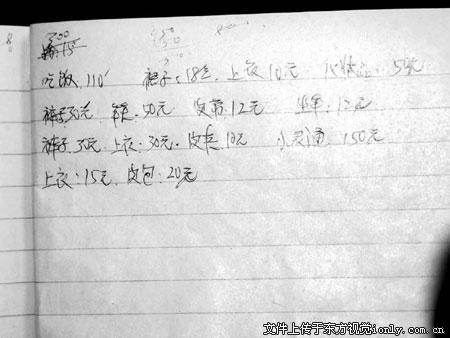 300
吃饭 110 裤子:18元 上衣 10元 5元
裤子30元 鞋 40元 皮带12元 坐车 12元
裤子 30元 上衣:30元 皮夹 10元 小灵通 150元
上衣:15元 皮包:20元
文件上传于东方视觉ionly.com.cn